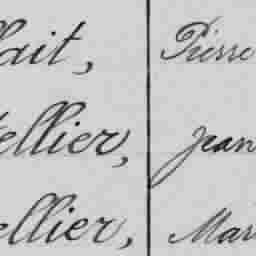 lait, Pierre
tellier, Jean
ellier, Mari